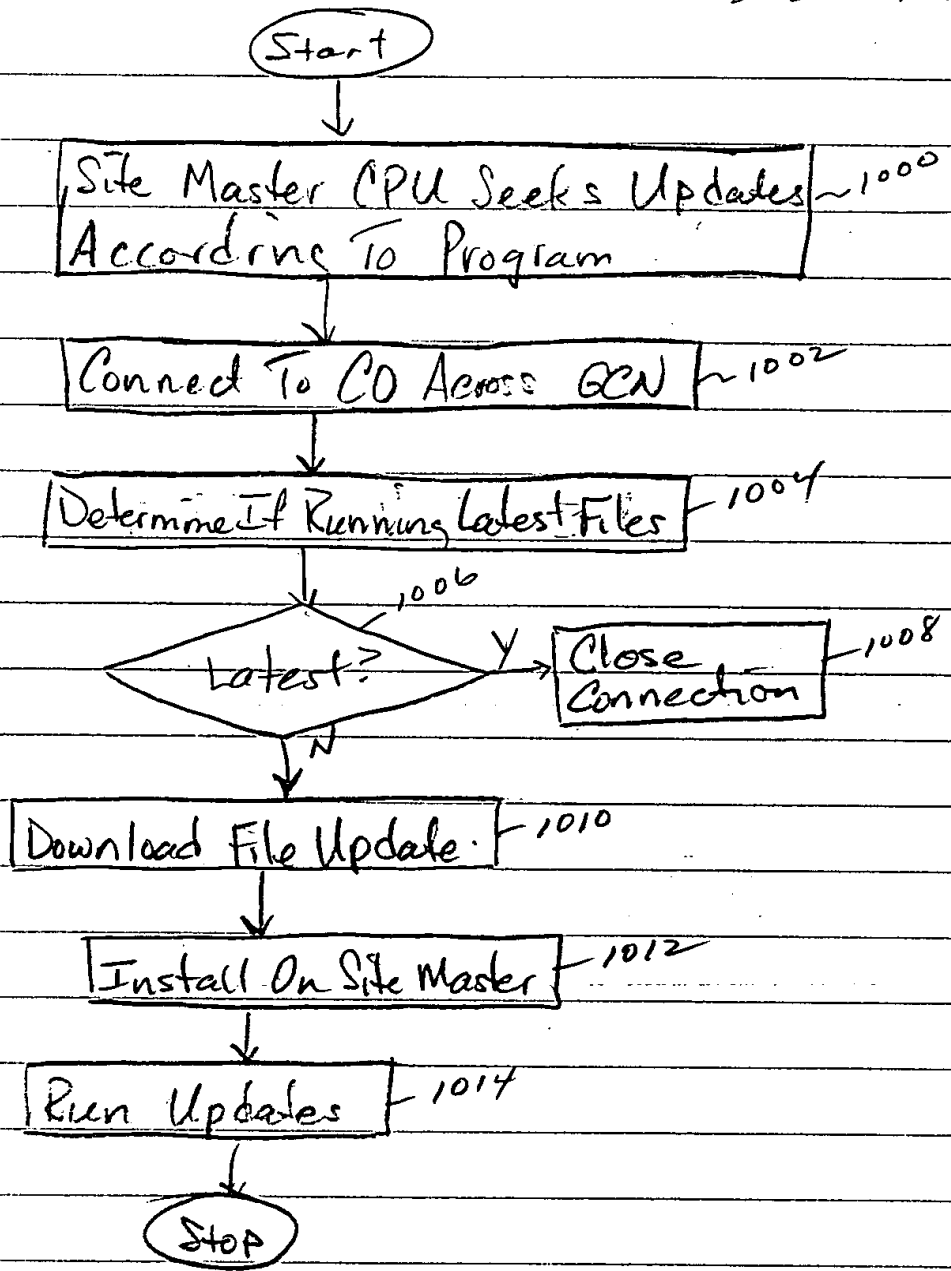 Start
Site Master CPU Seeks Updates
1000
According To Program
Connect To CO Across GCN
1002
Determine If Running Latest Files
1004
1006
Latest?
Y
Close
Connection
1008
N
Download File Update.
1010
Install On Site Master
1012
Run Updates
1014
Stop